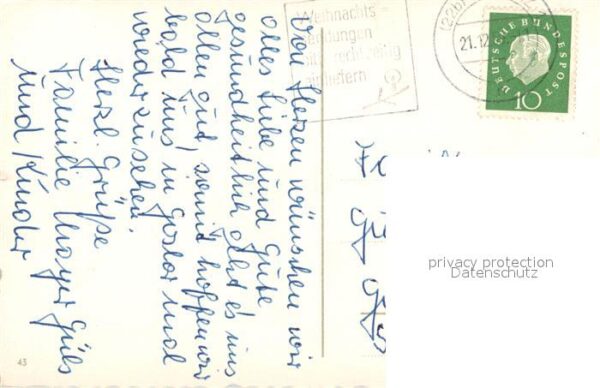 Von Herzen wünschen wir
alles Liebe und Gute
gesundheitlich geht es uns
allen gut, somit hoffen wir
bald uns in Goslar mal
wiederzusehen.
Herzl. Grüße
Familie Mayer Güls
und Kinder
Weihnachts-
sendungen
bitte rechtzeitig
einliefern
(22b)
21.12
DEUTSCHE BUNDESPOST
10
privacy protection
Datenschutz
43